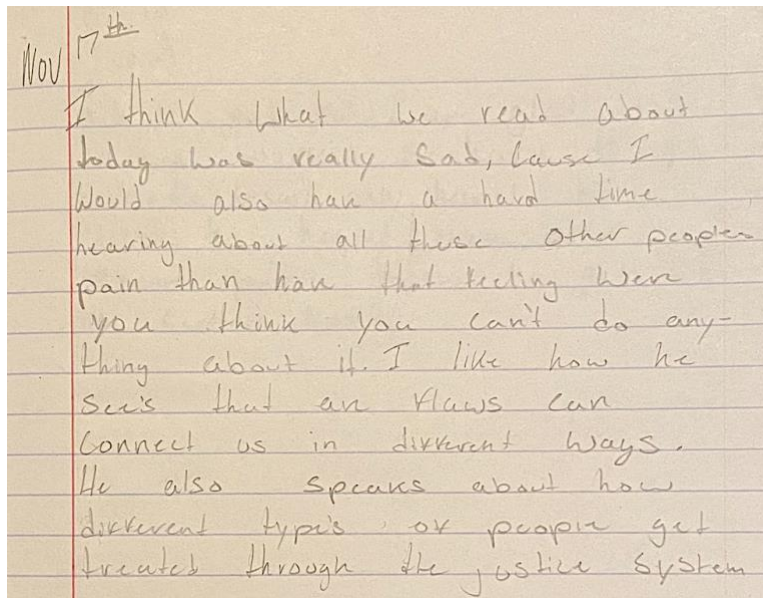 Nov 17th
I think what we read about
today was really sad, cause I
would also have a hard time
hearing about all these other peoples
pain than have that feeling were
you think you can't do any-
thing about it. I like how he
see's that are flaws can
connect us in different ways.
He also speaks about how
different type's of people get
treated through the justice system